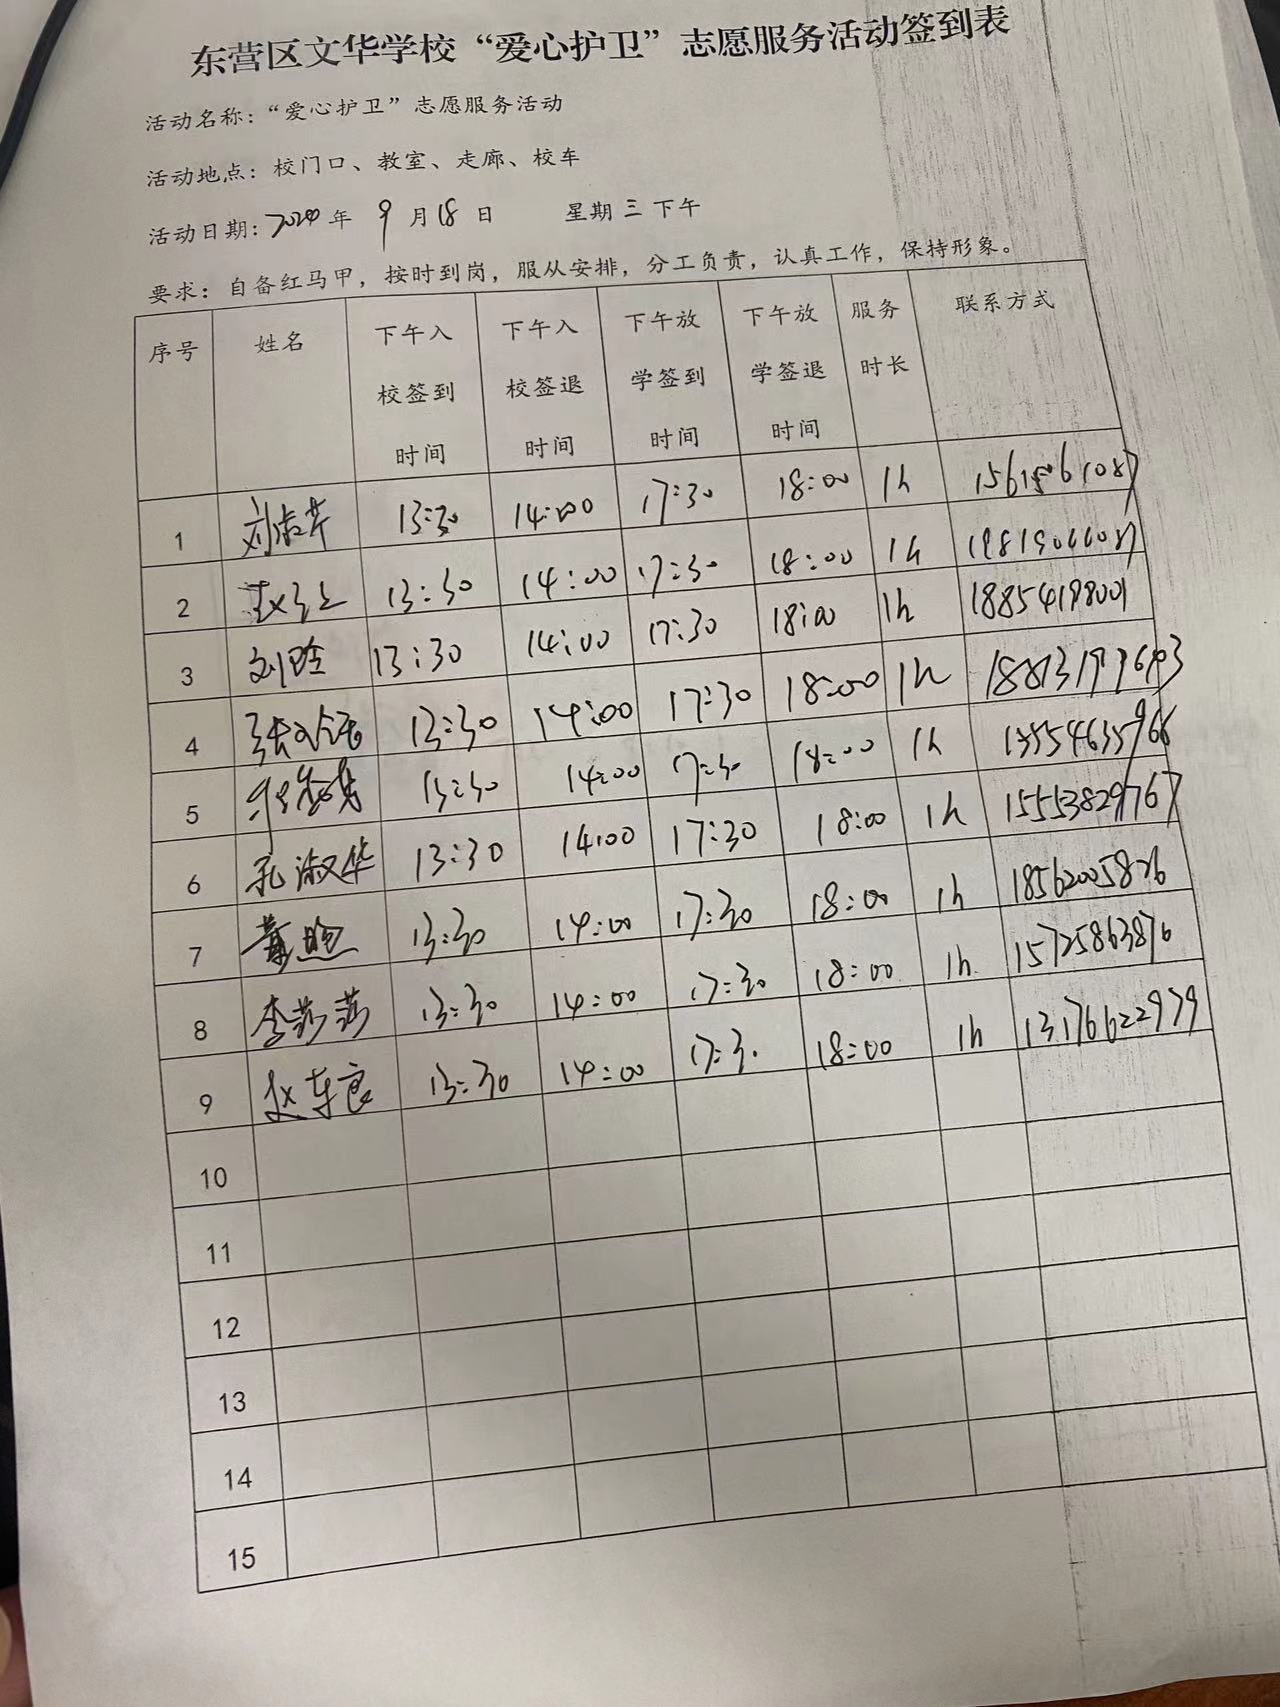 东营区文华学校“爱心护卫”志愿服务活动签到表
活动名称：“爱心护卫”志愿服务活动
活动地点：校门口、教室、走廊、校车
活动日期：2024年 9月18日 星期三下午
要求：自备红马甲，按时到岗，服从安排，分工负责，认真工作，保持形象。
序号 姓名 下午入校签到时间 下午入校签退时间 下午放学签到时间 下午放学签退时间 服务时长 联系方式
1 刘淑芹 13:30 14:00 17:30 18:00 1h
2 13:30 14:00 17:30 18:00 1h
3 刘晗 13:30 14:00 17:30 18:00 1h 18854198001
4 13:30 14:00 17:30 18:00 1h
5 13:30 14:00 17:30 18:00 1h 13554635966
6 孔淑华 13:30 14:00 17:30 18:00 1h 15553829767
7 13:30 14:00 17:30 18:00 1h 18562005826
8 李莎莎 13:30 14:00 17:30 18:00 1h 15725863876
9 赵车良 13:30 14:00 17:30 18:00 1h 13176622979
10
11
12
13
14
15